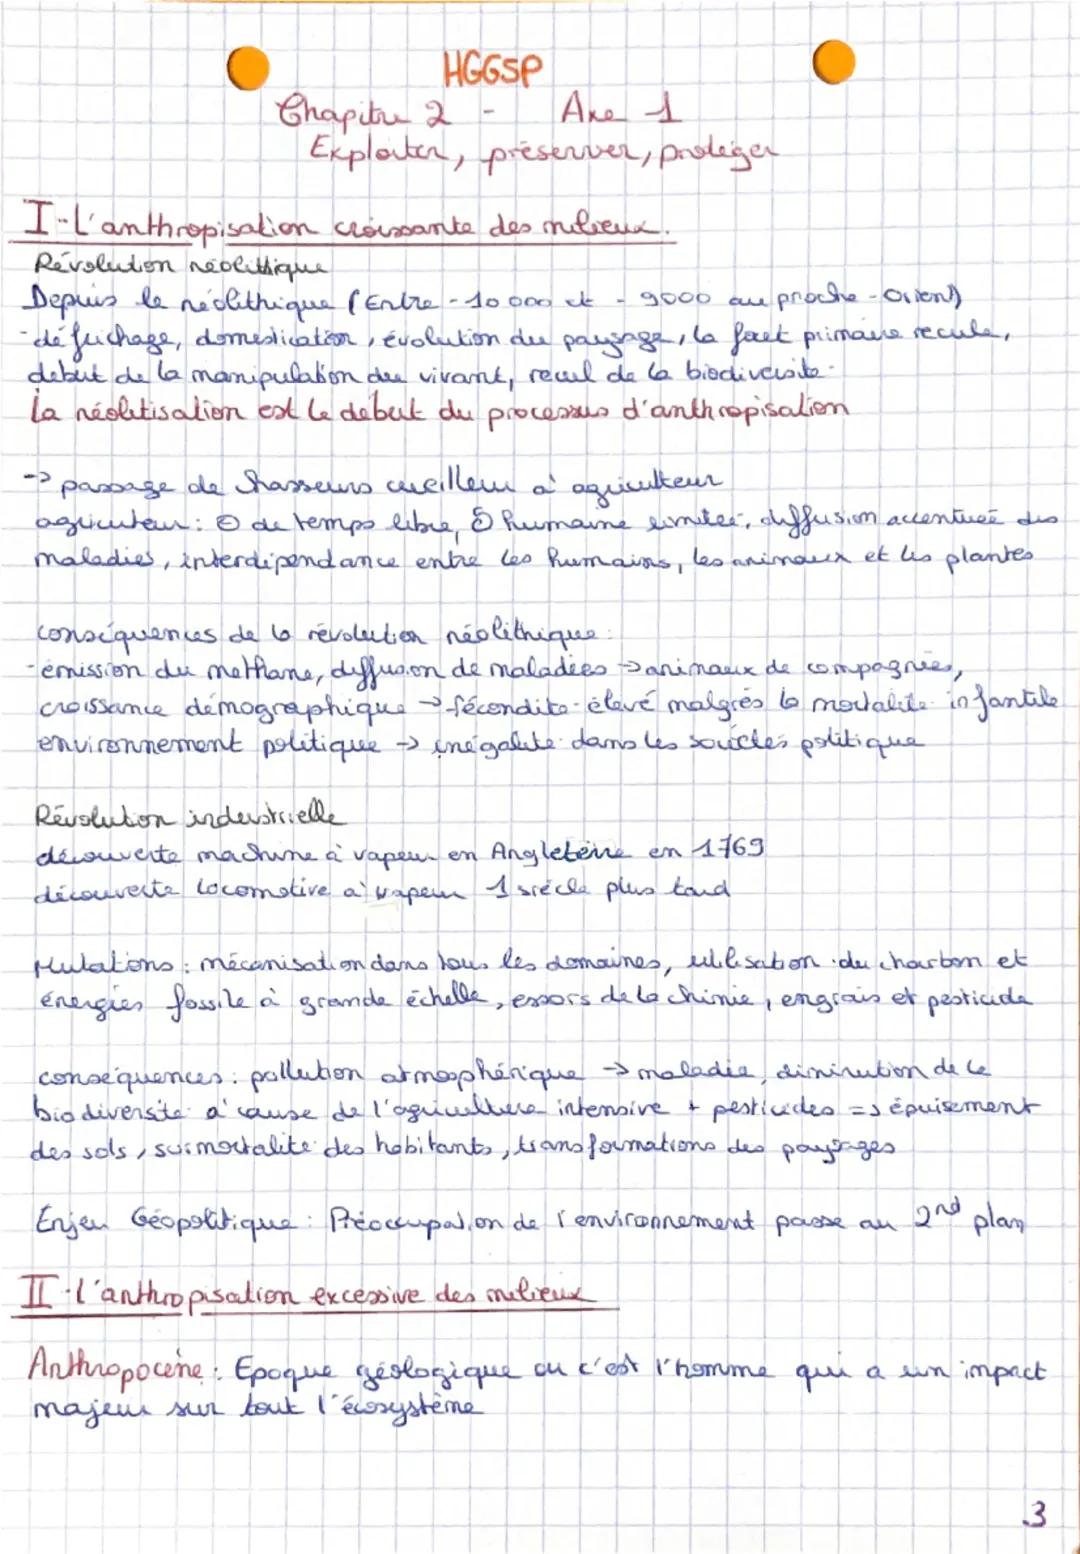 HGGSP
Chapitre 2 - Axe 1
Exploiter, préserver, protéger
I-L'anthropisation croissante des milieux.
Révolution néolithique
Depuis le néolithique (Entre -10 000 et -9000 au proche-Orient)
-défrichage, domestication, évolution du paysage, la forêt primaire recule,
début de la manipulation du vivant, recul de la biodiversité.
La néolitisation est le début du processus d'anthropisation
-> passage de chasseurs cueilleur à agriculteur
agriculteur : ⊖ de temps libre, humaine limitée, diffusion accentuée des
maladies, interdépendance entre les humains, les animaux et les plantes
conséquences de la révolution néolithique :
-émission du méthane, diffusion de maladies -> animaux de compagnies,
croissance démographique -> fécondité élevé malgrés la mortalité infantile
environnement politique -> inégalité dans les sociétés politique
Révolution industrielle
découverte machine à vapeur en Angleterre en 1769
découverte locomotive à vapeur 1 siècle plus tard
Mutations : mécanisation dans tous les domaines, utilisation du charbon et
énergies fossile à grande échelle, essors de la chimie, engrais et pesticide
conséquences : pollution atmosphérique -> maladie, diminution de la
biodiversité à cause de l'agriculture intensive + pesticides => épuisement
des sols, surmortalité des habitants, transformations des paysages
Enjeu Géopolitique : Préoccupation de l'environnement passe au 2nd plan
II-l'anthropisation excessive des milieux
Anthropocène : Epoque géologique ou c'est l'homme qui a un impact
majeur sur tout l'écosystème
3